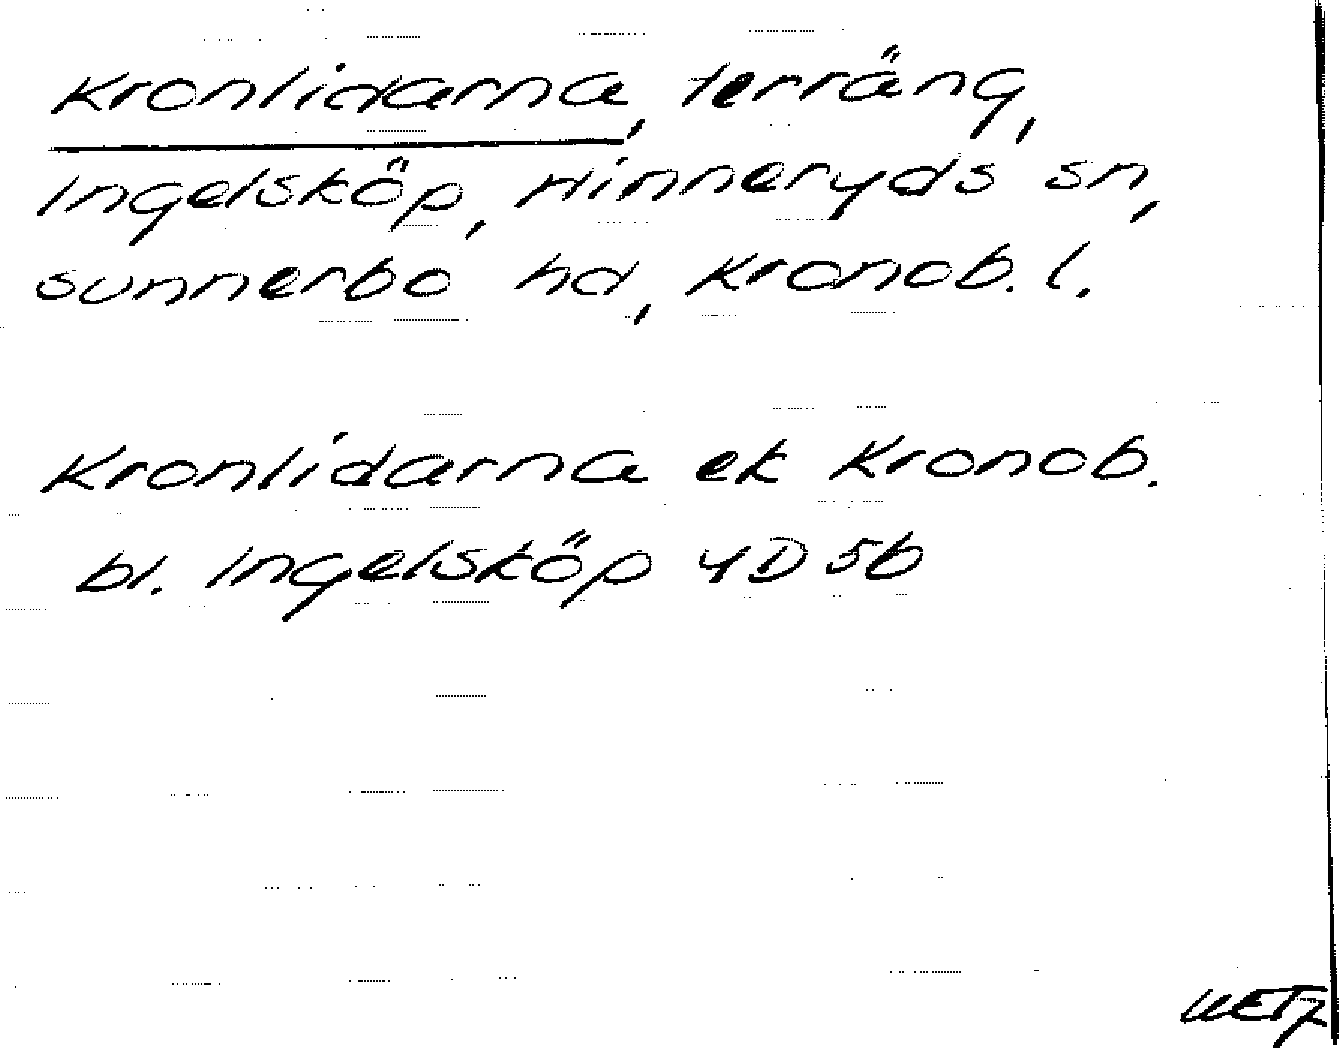 Kronlidarna, terräng,
Ingelsköp, Hinneryds sn,
Sunnerbo hd, Kronob. l.
Kronlidarna ek Kronob.
bl. Ingelsköp 4D 5b